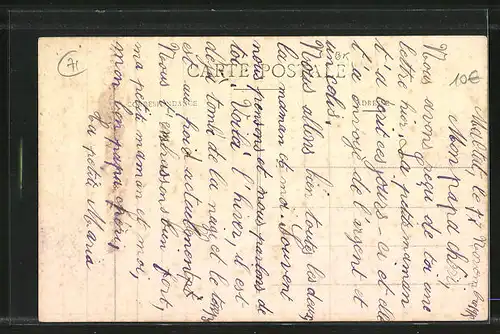 71
10€
CARTE POSTALE
Maillat, le 17 Novembre
Mon papa chéri,
Nous avons reçu de toi une
lettre hier. La petite maman
t'écart ces jours-ci et elle
t'a envoyé de l'argent et
un colis.
Nous allons bien toutes les deux
la maman et moi. Souvent
nous pensons et nous parlons de
toi. Voilà l'hiver, il est
déjà tombé de la neige et le temps
est au froid actuellement
Nous t'embrassons bien fort,
ma petite maman et moi,
mon bon papa chéri,
Ta petite Maria